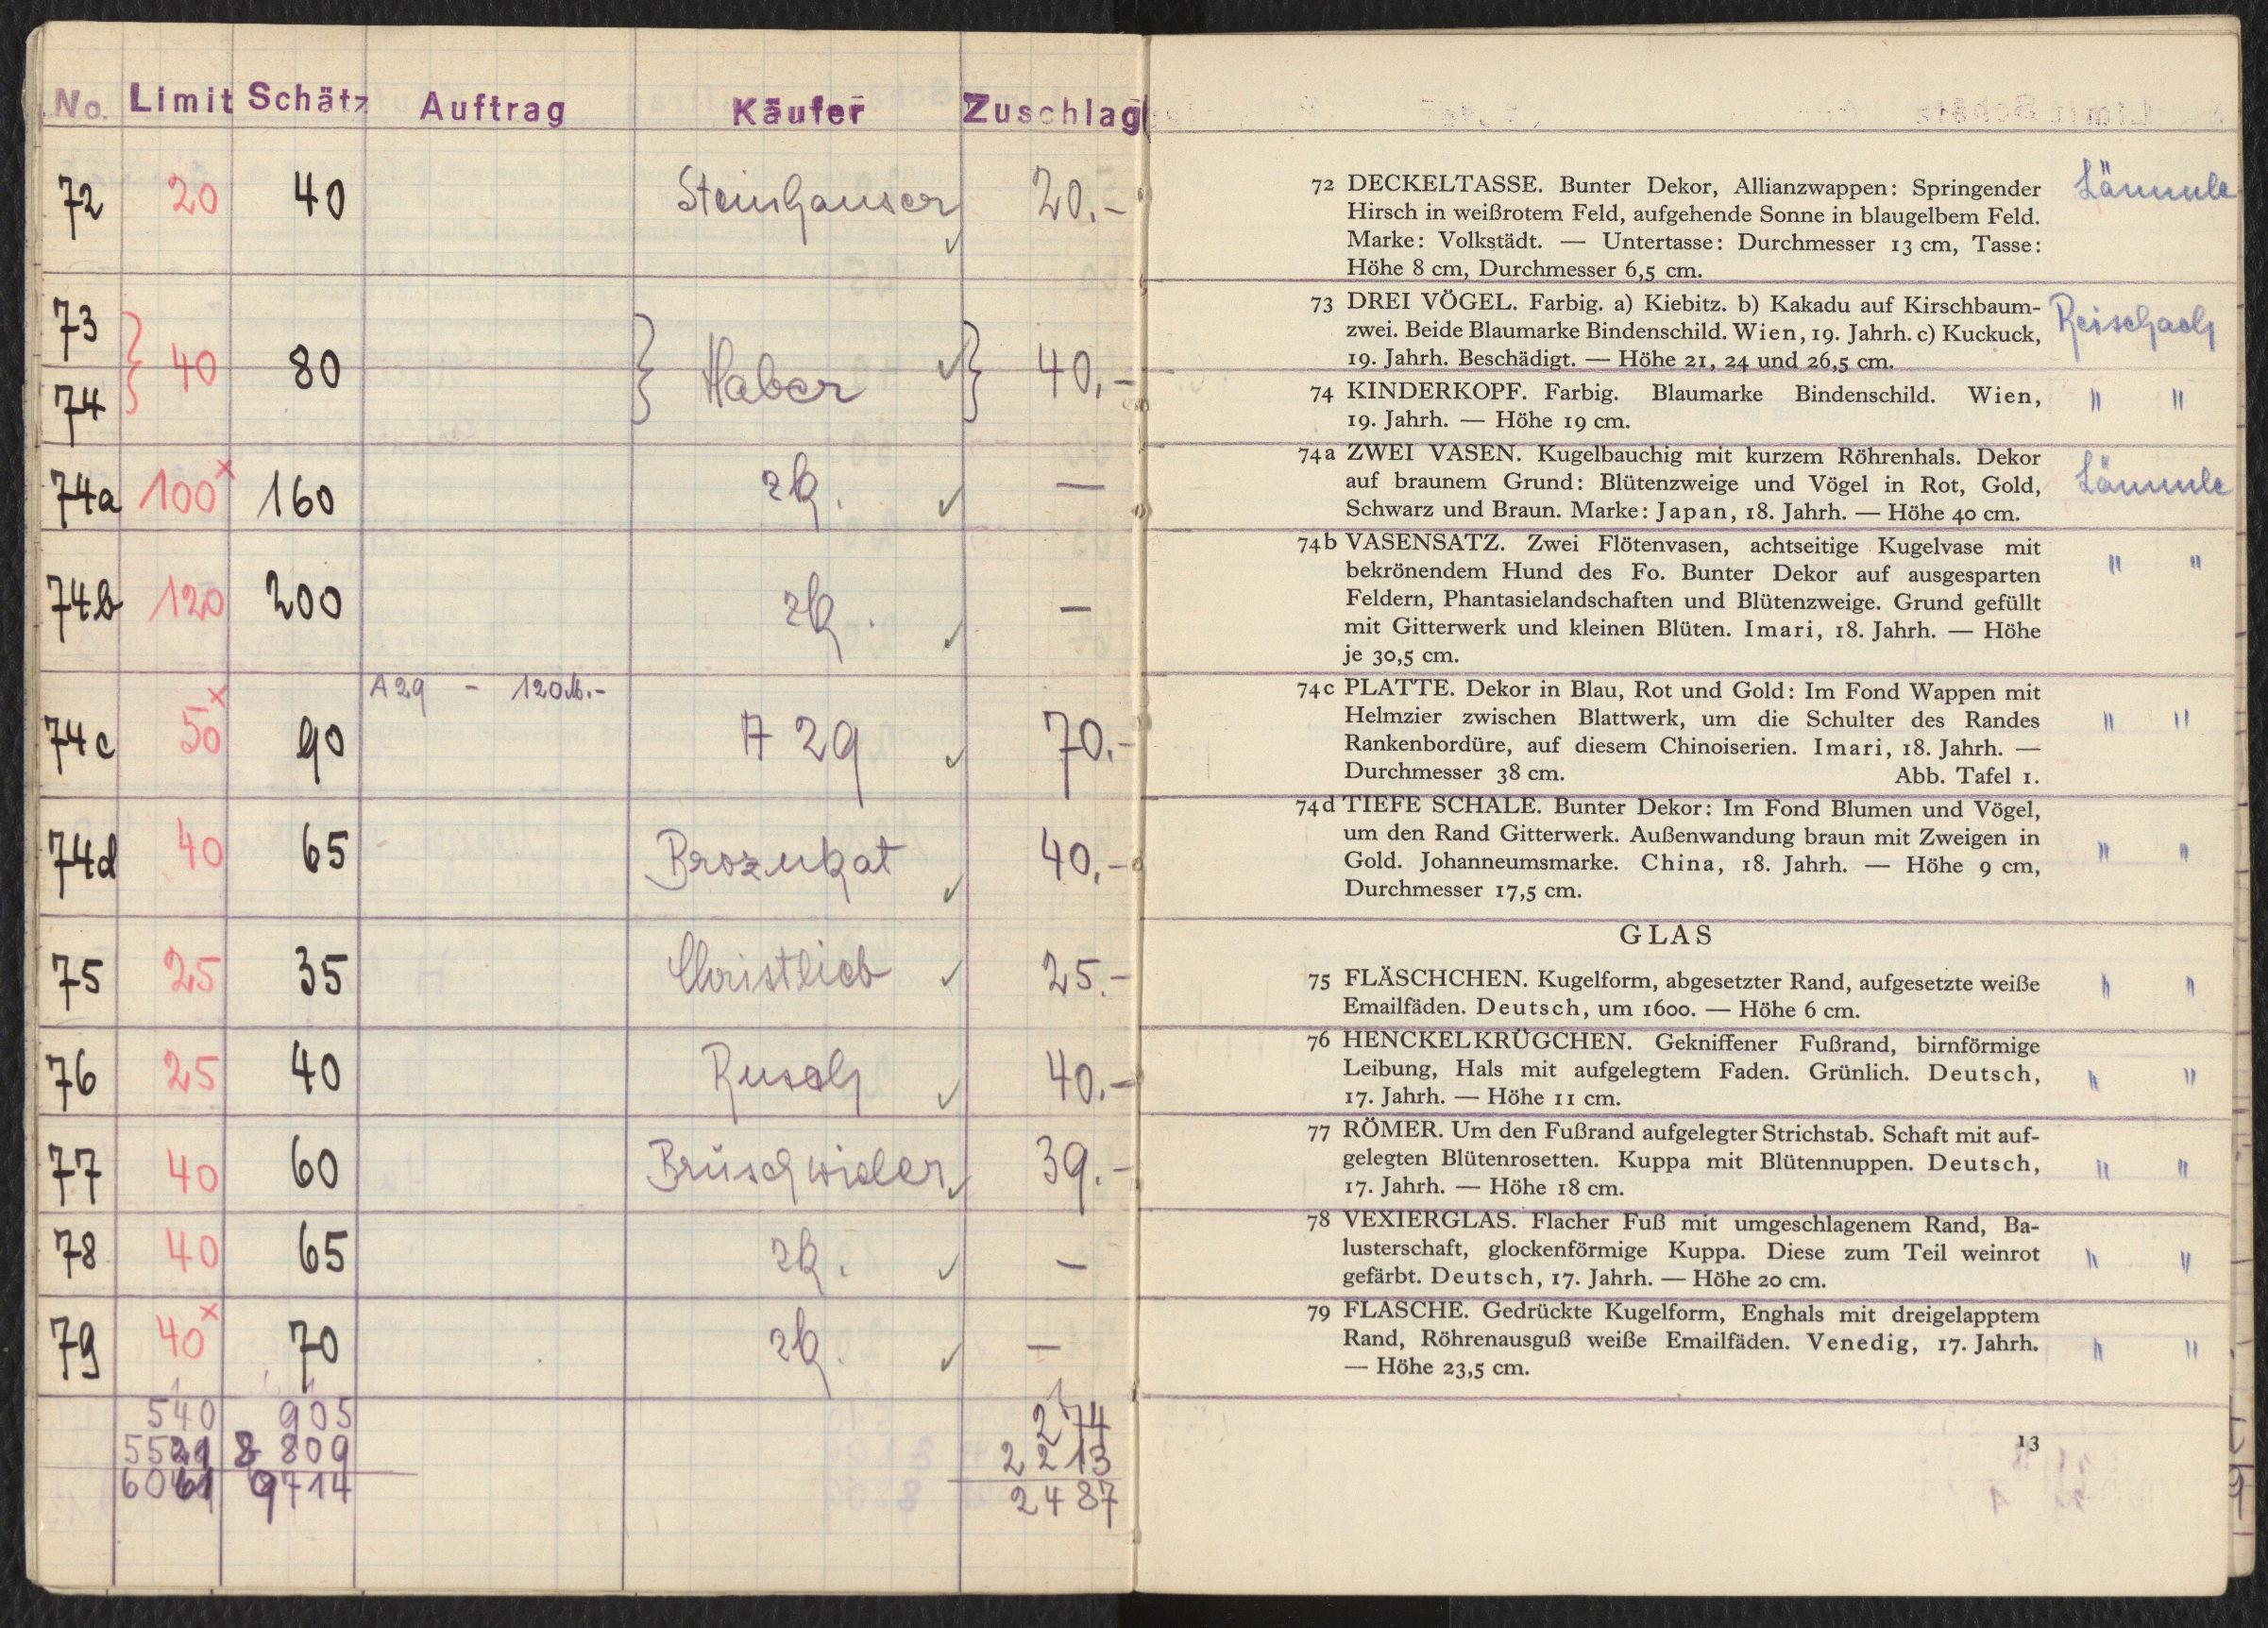 No. Limit Schätz Auftrag Käufer Zuschlag
72 20 40 Steinhauser ✓ 20.-
73
74 } 40 80 } Haber ✓ } 40.-
74a 100x 160 zk. ✓ —
74b 120 200 zk. ✓ —
A29 - 120 M.-
74c 50x 90 A 29 ✓ 70.-
74d 40 65 Brozukat ✓ 40.-
75 25 35 Christlieb ✓ 25.-
76 25 40 Rusch ✓ 40.-
77 40 60 Brüschwieler ✓ 39.-
78 40 65 zk. ✓ —
79 40x 70 zk. ✓ —
540 905 274
5521 8 809 2 213
6061 9714 2487
72 DECKELTASSE. Bunter Dekor, Allianzwappen: Springender Lämmle
Hirsch in weißrotem Feld, aufgehende Sonne in blaugelbem Feld.
Marke: Volkstädt. — Untertasse: Durchmesser 13 cm, Tasse:
Höhe 8 cm, Durchmesser 6,5 cm.
73 DREI VÖGEL. Farbig. a) Kiebitz. b) Kakadu auf Kirschbaum- Reischach
zwei. Beide Blaumarke Bindenschild. Wien, 19. Jahrh. c) Kuckuck,
19. Jahrh. Beschädigt. — Höhe 21, 24 und 26,5 cm.
74 KINDERKOPF. Farbig. Blaumarke Bindenschild. Wien, " "
19. Jahrh. — Höhe 19 cm.
74a ZWEI VASEN. Kugelbauchig mit kurzem Röhrenhals. Dekor Lämmle
auf braunem Grund: Blütenzweige und Vögel in Rot, Gold,
Schwarz und Braun. Marke: Japan, 18. Jahrh. — Höhe 40 cm.
74b VASENSATZ. Zwei Flötenvasen, achtseitige Kugelvase mit " "
bekrönendem Hund des Fo. Bunter Dekor auf ausgesparten
Feldern, Phantasielandschaften und Blütenzweige. Grund gefüllt
mit Gitterwerk und kleinen Blüten. Imari, 18. Jahrh. — Höhe
je 30,5 cm.
74c PLATTE. Dekor in Blau, Rot und Gold: Im Fond Wappen mit
Helmzier zwischen Blattwerk, um die Schulter des Randes " "
Rankenbordüre, auf diesem Chinoiserien. Imari, 18. Jahrh. —
Durchmesser 38 cm. Abb. Tafel 1.
74d TIEFE SCHALE. Bunter Dekor: Im Fond Blumen und Vögel,
um den Rand Gitterwerk. Außenwandung braun mit Zweigen in " "
Gold. Johanneumsmarke. China, 18. Jahrh. — Höhe 9 cm,
Durchmesser 17,5 cm.
GLAS
75 FLÄSCHCHEN. Kugelform, abgesetzter Rand, aufgesetzte weiße " "
Emailfäden. Deutsch, um 1600. — Höhe 6 cm.
76 HENCKELKRÜGCHEN. Gekniffener Fußrand, birnförmige
Leibung, Hals mit aufgelegtem Faden. Grünlich. Deutsch, " "
17. Jahrh. — Höhe 11 cm.
77 RÖMER. Um den Fußrand aufgelegter Strichstab. Schaft mit auf-
gelegten Blütenrosetten. Kuppa mit Blütennuppen. Deutsch, " "
17. Jahrh. — Höhe 18 cm.
78 VEXIERGLAS. Flacher Fuß mit umgeschlagenem Rand, Ba-
lusterschaft, glockenförmige Kuppa. Diese zum Teil weinrot " "
gefärbt. Deutsch, 17. Jahrh. — Höhe 20 cm.
79 FLASCHE. Gedrückte Kugelform, Enghals mit dreigelapptem
Rand, Röhrenausguß weiße Emailfäden. Venedig, 17. Jahrh. " "
— Höhe 23,5 cm.
13